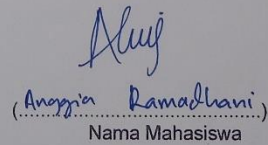 (Anggia Ramadhani)
Nama Mahasiswa